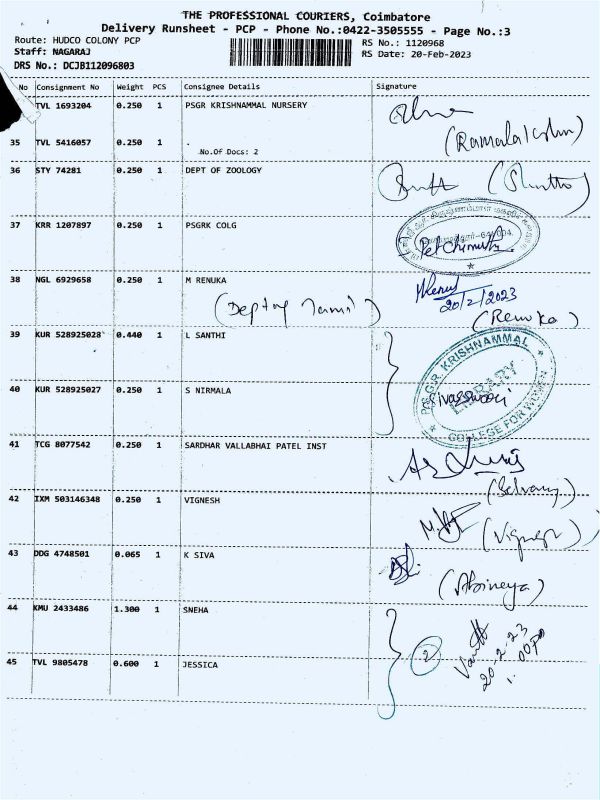 THE PROFESSIONAL COURIERS, Coimbatore
Delivery Runsheet - PCP - Phone No.:0422-3505555 - Page No.:3
Route: HUDCO COLONY PCP
RS No.: 1120968
Staff: NAGARAJ
RS Date: 20-Feb-2023
DRS No.: DCJB112096803
No Consignment No Weight PCS Consignee Details Signature
TVL 1693204 0.250 1 PSGR KRISHNAMMAL NURSERY
35 TVL 5416057 0.250 1 .
No.Of Docs: 2
36 STY 74281 0.250 1 DEPT OF ZOOLOGY
37 KRR 1207897 0.250 1 PSGRK COLG
38 NGL 6929658 0.250 1 M RENUKA
20/2/2023
(Dept of Tamil)
(Renuka)
39 KUR 528925028 0.440 1 L SANTHI
P.S.G.R. KRISHNAMMAL
LIBRARY
COLLEGE FOR WOMEN
40 KUR 528925027 0.250 1 S NIRMALA
41 TCG 8077542 0.250 1 SARDHAR VALLABHAI PATEL INST
42 IXM 503146348 0.250 1 VIGNESH
(Vignesh)
43 DDG 4748501 0.065 1 K SIVA
(Abineya)
44 KMU 2433486 1.300 1 SNEHA
2
20-2-23
45 TVL 9805478 0.600 1 JESSICA